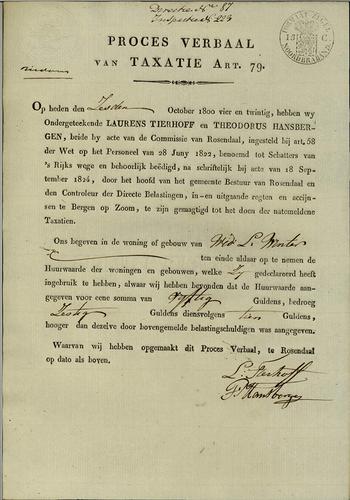 Directie No 87
Inspectie No 223
PROCES VERBAAL
VAN TAXATIE ART. 79.
Op heden den Zesden October 1800 vier en twintig, hebben wy
Ondergeteekende LAURENS TIERHOFF en THEODORUS HANSBER-
GEN, beide by acte van de Commissie van Rosendaal, ingesteld bij art. 58
der Wet op het Personeel van 28 Juny 1822, benoemd tot Schatters van
's Rijks wege en behoorlijk beëdigd, na schriftelijk bij acte van 18 Sep-
tember 1824, door het hoofd van het gemeente Bestuur van Rosendaal en
den Controleur der Directe Belastingen, in- en uitgaande regten en accijn-
sen te Bergen op Zoom, te zijn gemagtigd tot het doen der natemeldene
Taxatien.
Ons begeven in de woning of gebouw van Wed L. Wenter
ten einde aldaar op te nemen de
Huurwaarde der woningen en gebouwen, welke Zy gedeclareerd heeft
ingebruik te hebben, alwaar wij hebben bevonden dat de Huurwaarde aan-
gegeven voor eene somma van Vyftig Guldens, bedroeg
Zestig Guldens diensvolgens tien Guldens,
hooger dan dezelve door bovengemelde belastingschuldigen was aangegeven.
Waarvan wij hebben opgemaakt dit Proces Verbaal, te Rosendaal
op dato als boven.
L. Tierhoff
Ts Hansbergen